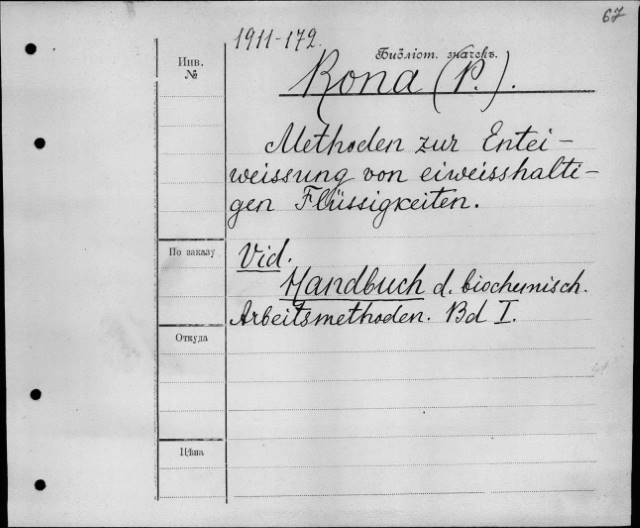 67
1911-172.
Библіот. значекъ.
Инв.
№
Rona (P.).
Methoden zur Entei-
weissung von eiweisshalti-
gen Flüssigkeiten.
По заказу
Vid.
Handbuch d. biochemisch.
Arbeitsmethoden. Bd I.
Откуда
Цѣна